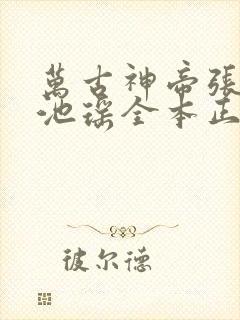 萬古神帝張
池瑤全本正
彼尔德